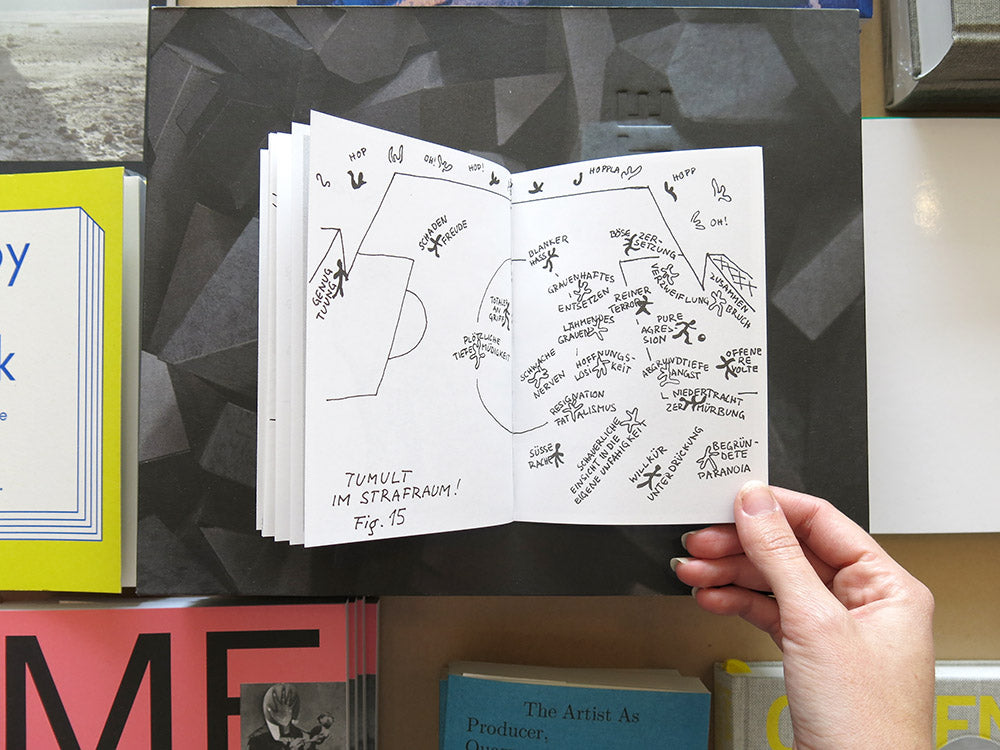 HOP
OH!
HOP!
HOPPLA
HOPP
OH!
SCHADEN
FREUDE
GENUG
TUUNG
TOTALER
AN
GRIFF
PLÖTZLICHE
TIEFE MÜDIGKEIT
TUMULT
IM STRAFRAUM!
Fig. 15
BLANKER
HASS
BÖSE ZER-
SETZUNG
GRAUENHAFTES
ENTSETZEN
VERZWEIFLUNG
ZUSAMMEN
BRUCH
REINER
TERROR
LÄHMENDES
GRAUEN
PURE
AGRES
SION
SCHWACHE
NERVEN
HOFFNUNGS-
LOSIGKEIT
ABGRUNDTIEFE
ANGST
OFFENE
RE
VOLTE
RESIGNATION
FATALISMUS
NIEDERTRACHT
ZERMÜRBUNG
SÜSSE
RACHE
SCHAUERLICHE
EINSICHT IN DIE
EIGENE UNFÄHIGKEIT
WILLKÜR
UNTERDRÜCKUNG
BEGRÜN-
DETE
PARANOIA
oy
k
e
ME
The Artist As
Producer,